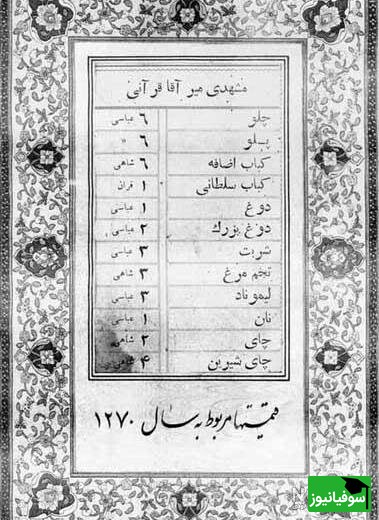 مشهدی میر آقا قرآنی
چلو ٦ عباسی
پلو ٦ "
کباب اضافه ٦ شاهی
کباب سلطانی ١ قران
دوغ ١ عباسی
دوغ بزرگ ٢ عباسی
شربت ٣ عباسی
تخم مرغ ٣ شاهی
لیموناد ٣ عباسی
نان ١ عباسی
چای ٢ شاهی
چای شیرین ۴ شاهی
قیمتها مربوط به سال ١٢٧٠
سوفیانیوز